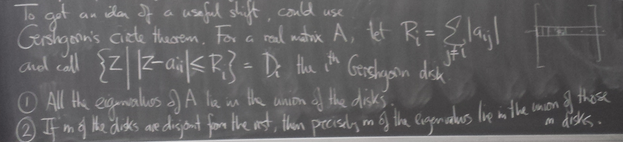 To get an idea of a useful shift, could use
Gershgorin's circle theorem. For a real matrix A, let Rᵢ = ∑_{j≠i} |aᵢⱼ|
and call {z | |z-aᵢᵢ| ≤ Rᵢ} = Dᵢ the iᵗʰ Gershgorin disk.
① All the eigenvalues of A lie in the union of the disks.
② If m of the disks are disjoint from the rest, then precisely m of the eigenvalues lie in the union of those
m disks.